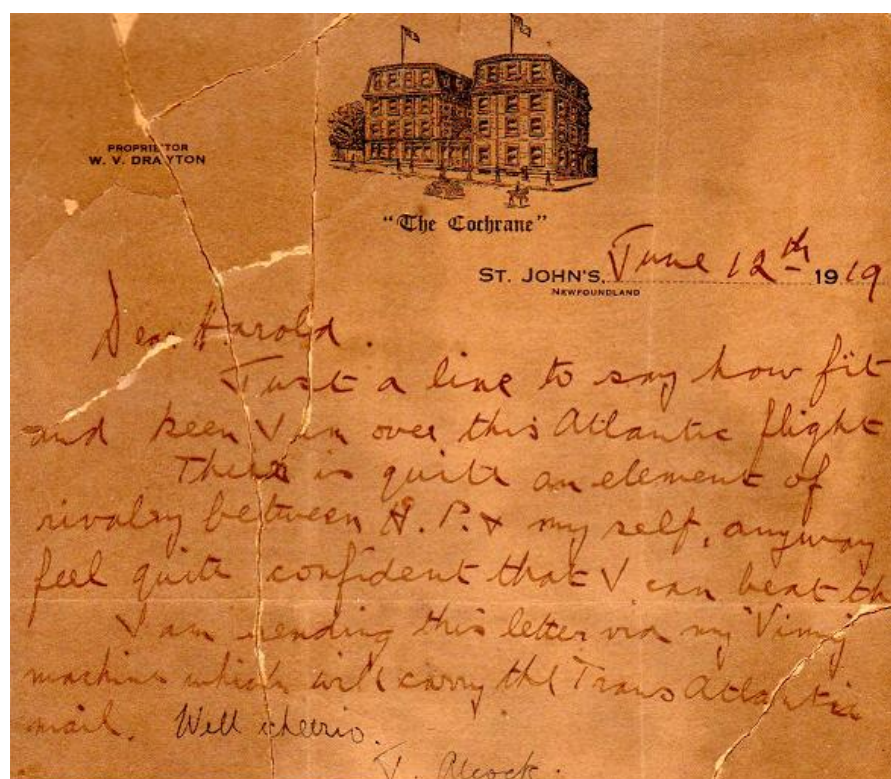 PROPRIETOR
W. V. DRAYTON
"The Cochrane"
ST. JOHN'S, June 12th 1919
NEWFOUNDLAND
Dear Harold.
Just a line to say how fit
and keen I am over this Atlantic flight
There is quite an element of
rivalry between H. P. & my self, anyway
feel quite confident that I can beat th
I am sending this letter via my Vimy
machine which will carry the Trans Atlantic
mail. Well cheerio.
J. Alcock.